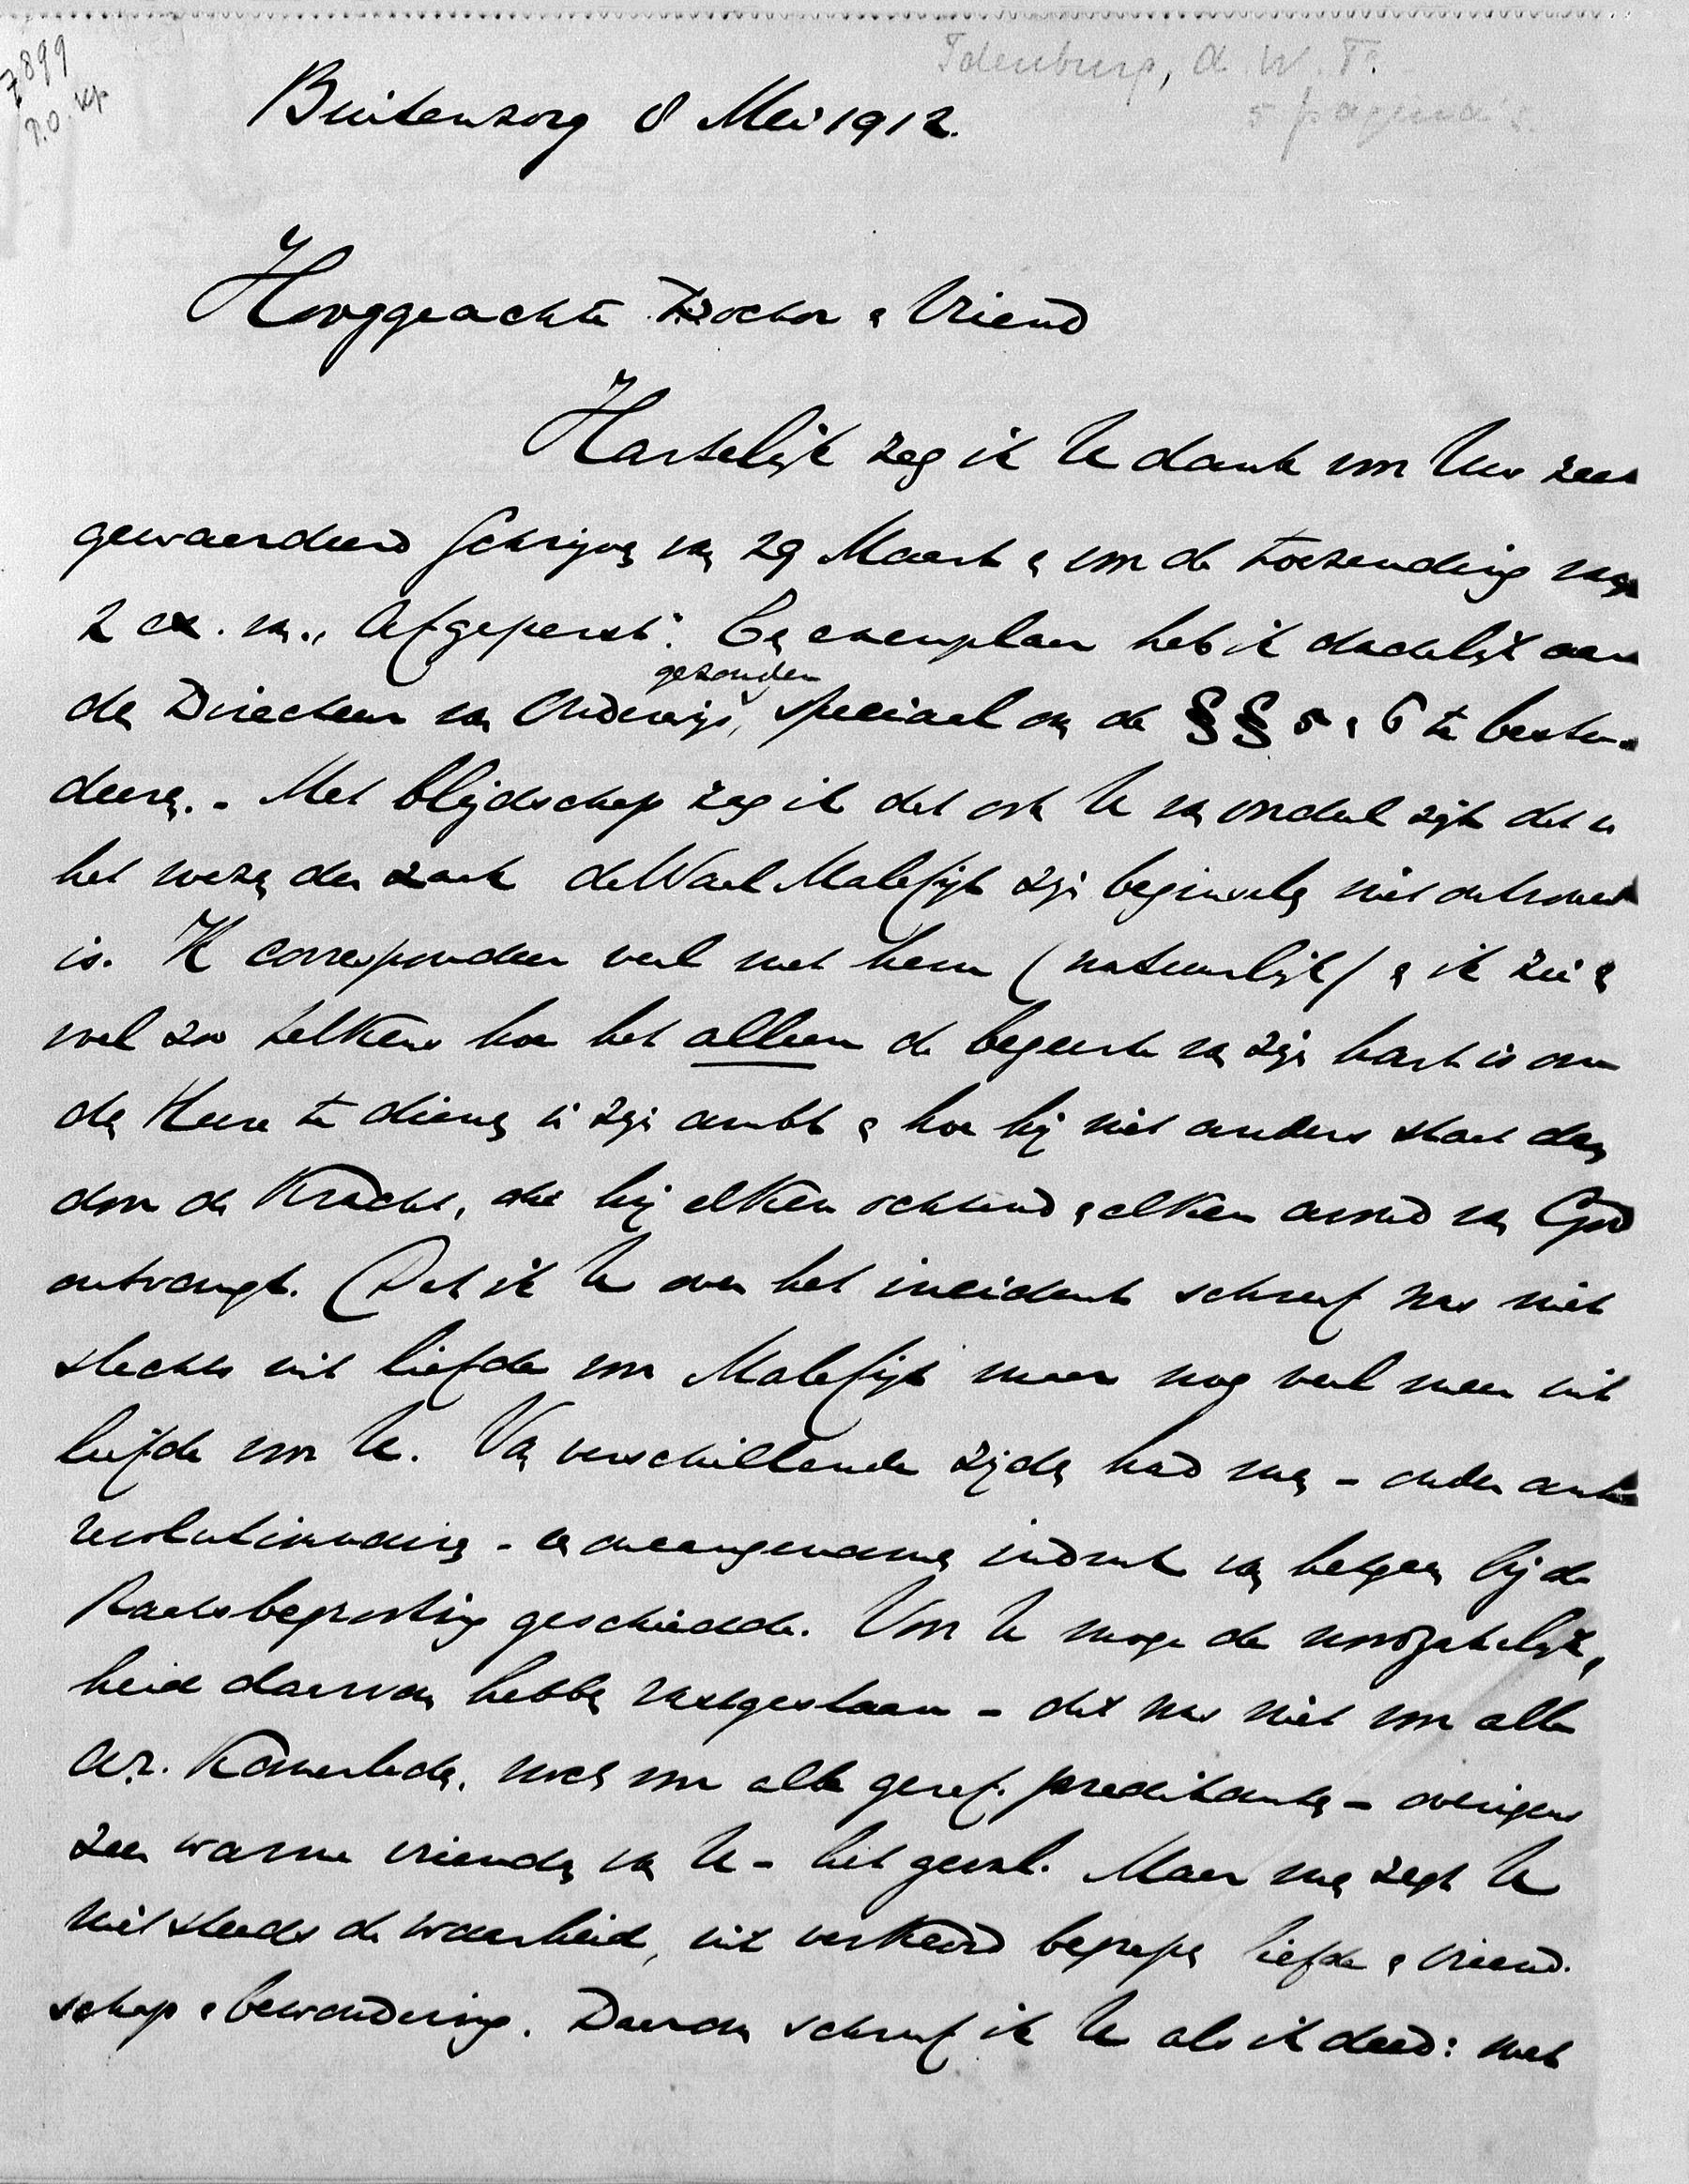 7899
Idenburg, A. W. F.
5 pagina's.
Buitenzorg 8 Mei 1912.
Hooggeachte Doctor & Vriend
Hartelijk zeg ik U dank voor Uw zeer
gewaardeerd schrijven van 29 Maart & voor de toezending van
2 ex. van "Afgeperst". Een exemplaar heb ik dadelijk aan
gezonden
den Directeur van Onderwijs, speciaal om de §§ 5 & 6 te bestu-
deeren. - Met blijdschap zag ik dat ook U van oordeel zijt dat in
het wezen der zaak de Waal Malefijt zijn beginselen niet ontrouw
is. Ik correspondeer veel met hem (natuurlijk) & ik zie &
voel zoo telkens hoe het alleen de begeerte van zijn hart is om
den Heere te dienen in zijn ambt & hoe hij niet anders staat dan
door de kracht, die hij elken ochtend & elken avond van God
ontvangt. (Dat ik U over het incident schreef was niet
slechts uit liefde voor Malefijt maar nog veel meer uit
liefde voor U. Van verschillende zijden had men - onder anti
revolutionnairen - een onaangenamen indruk van hetgeen bij de
Staatsbegrooting geschiedde. Voor U moge de noodzakelijk-
heid daarvan hebben vastgestaan - dit was niet voor alle
a.r. Kamerleden, noch voor alle geref. predikanten - overigens
zeer warme vrienden van U - het geval. Maar men zegt U
niet steeds de waarheid, uit verkeerd begrepen liefde & vriend-
schap & bewondering. Daarom schreef ik U als ik deed: met